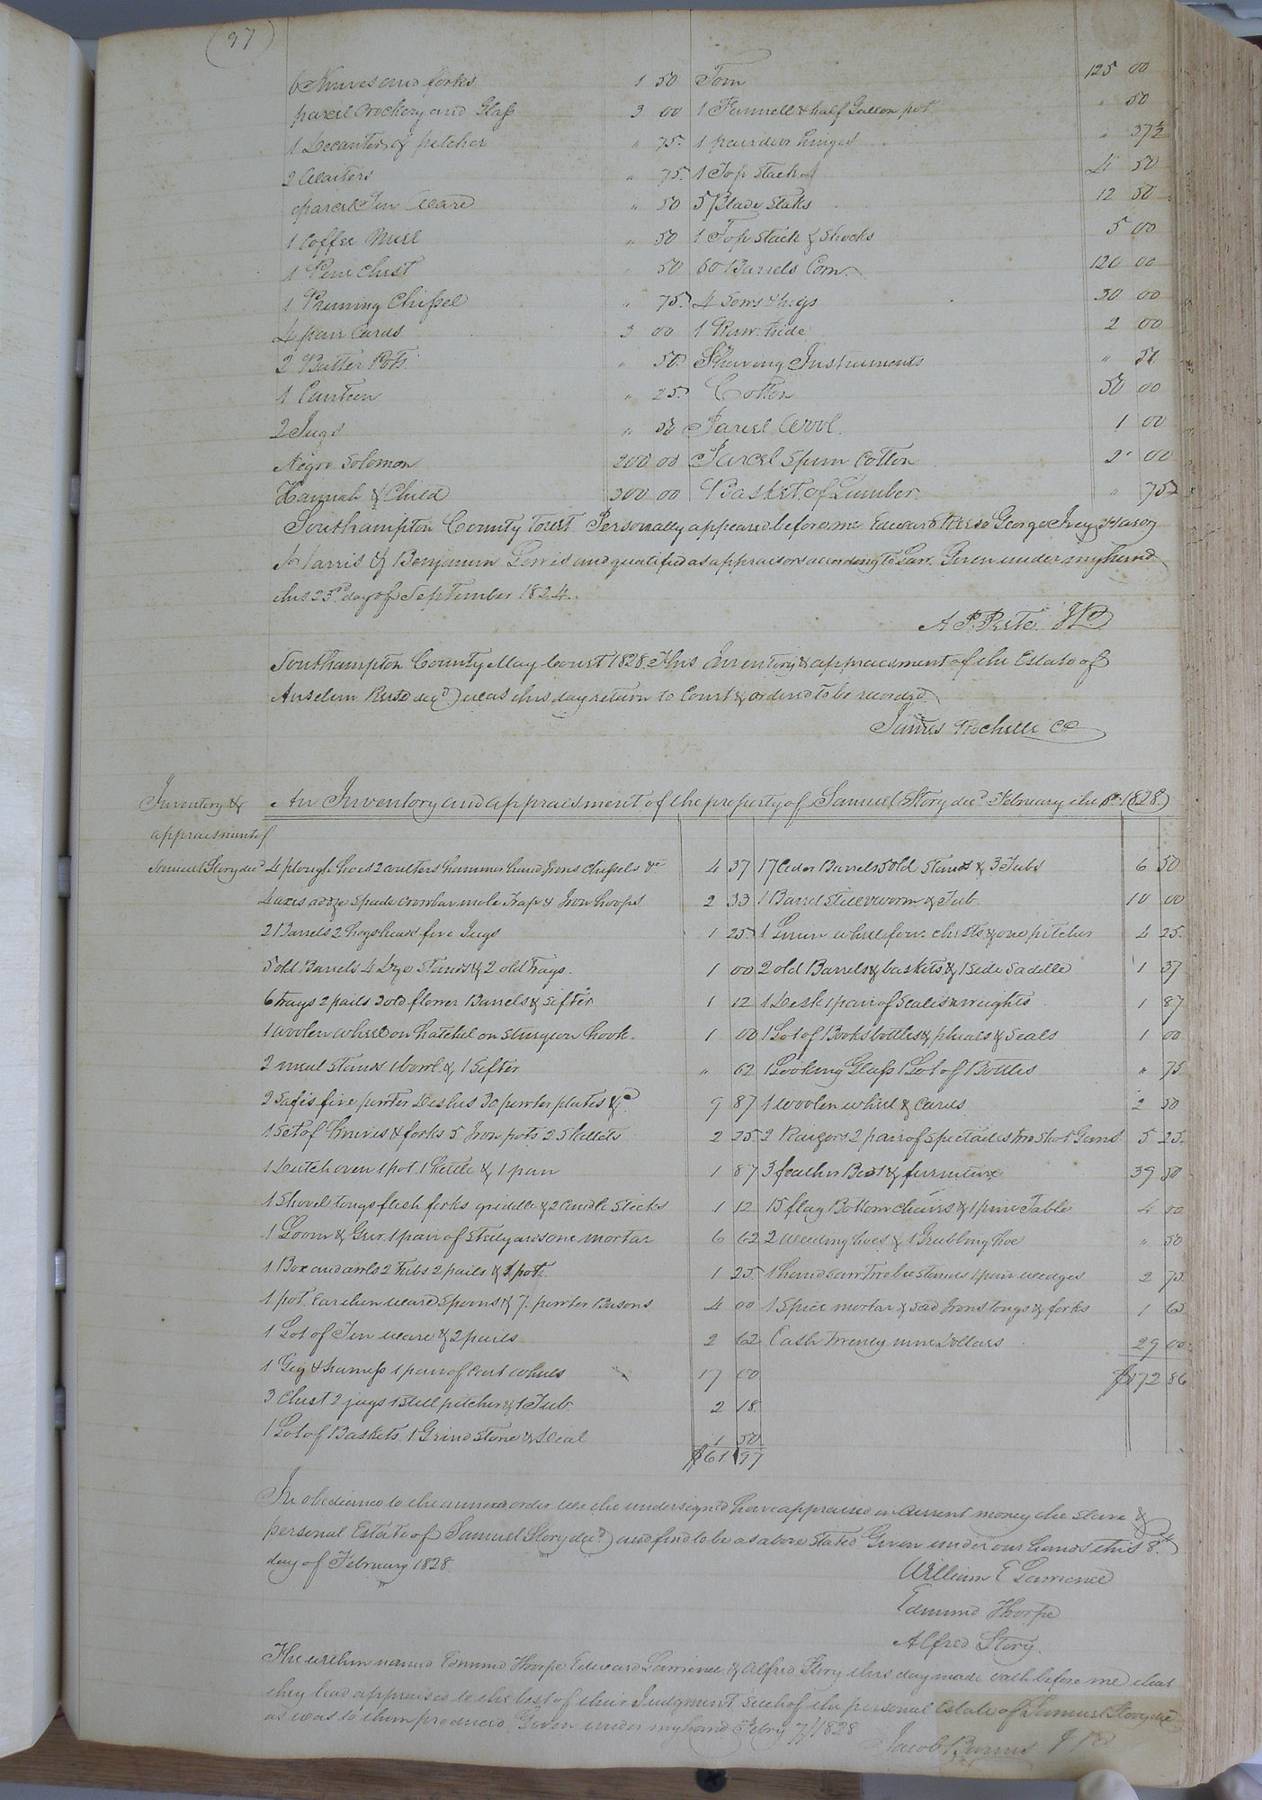 (97)
6 Knives and forks 1 50 Tom 125 00
parcel Crockery and Glass 3 00 1 Funnell & half Gallon pot " 50
1 Decanter & pitcher " 75 1 pair door hinges " 37½
2 Waiters " 75 1 Top Stack 4 50
parcel Tin Ware " 50 5 Blade Staks 12 50
1 Coffee Mill " 50 1 Top Stack & Shocks 5 00
1 Pine Chest " 50 60 Barrels Corn 120 00
1 Pruning Chissel " 75 4 Sows & pigs 30 00
4 pair Cards 3 00 1 Raw hide 2 00
2 Butter Pots " 50 Shaving Instruments " 50
1 Canteen " 25 Cotton 50 00
2 Jugs " 50 Parcel Wool 1 00
Negro Solomon 200 00 Parcel Spun Cotton 2 00
Hannah & Child 300 00 Basket of Lumber " 75
Southampton County Towit Personally appeared before me Edward Reese George Ivey Mason
Harris & Benjamin Lewis and qualified as appraisors according to Law. Given under my hand
this 23d day of September 1824.
A P. Peete JP
Southampton County May Court 1828. This Inventory & appraisment of the Estate of
Anselm Reese decd was this day return to Court & ordered to be recorded
James Rochelle CC
Inventory & An Inventory and appraisment of the property of Samuel Story decd February the 8th 1828
appraisment of
Samuel Story decd 4 plough hoes 2 coulters hammer hand Irons Chissels &c 4 37 17 Cedar Barrels 5 old Stands & 3 Tubs 6 50
4 axes adze Spade Crowbar mole Trap & Iron hoops 2 33 1 Barrel Still & worm & Tub 10 00
2 Barrels 2 hogshead five Jugs 1 25 1 Linen wheel four chests & one pitcher 4 25
5 old Barrels 4 Lye Stands & 2 old Trays 1 00 2 old Barrels & baskets & 1 Side Saddle 1 37
6 trays 2 pails 3 old flower Barrels & Sifter 1 12 1 Desk 1 pair of Scales & weights 1 87
1 woolen wheel on hatchel on Sturgeon hook 1 00 1 Lot of Books bottles & pheals & Seals 1 00
2 meal Stands 1 bowl & 1 Sifter " 62 1 Looking Glass 1 Lot of Bottles " 75
2 Safes five pewter Dishes 30 pewter plates &c 9 87 1 woolen wheel & Cards 2 50
1 Set of knives & forks 5 Iron pots 2 Skillets 2 25 2 Raizors 2 pair of Spectacles two Shot Guns 5 25
1 Dutch oven 1 pot 1 Kettle & 1 pan 1 87 3 feather Beds & furniture 39 50
1 Shovel tongs flesh forks griddle & 2 Candle Sticks 1 12 15 flag Bottom chairs & 1 pine Table 4 00
1 Loom & Gear 1 pair of Steelyards one mortar 6 62 2 weeding hoes & 1 Grubbing hoe " 50
1 Box and awls 2 Tubs 2 pails & 1 pot 1 25 1 hand saw Two bee stands 1 pair wedges 2 75
1 pot Earthen ware Spoons & 7 pewter Basons 4 00 1 Spice mortar & Sad Irons tongs & forks 1 62
1 Lot of Tin ware & 2 pails 2 62 Cash Twenty nine Dollars 29 00
1 Gig & harness 1 pair of Cart wheels 17 00 $172 86
3 Chest 2 jugs 1 Bell pitcher & 1 Tub 2 18
1 Lot of Baskets 1 Grind Stone & Deal 1 50
$61 97
In obedience to the annexed order we the undersign'd have appraised in Current money the slave &
personal Estate of Samuel Story decd and find to be as above Stated Given under our hands this 8th
day of February 1828
William E Lawrence
Edmund Thorpe
Alfred Story
The within named Edmund Thorpe Edward Lawrence & Alfred Story this day made oath before me that
they had appraised to the best of their Judgment such of the personal Estate of Samuel Story decd
as was to them produced Given under my hand Febry 7, 1828
Jacob Barnes JP